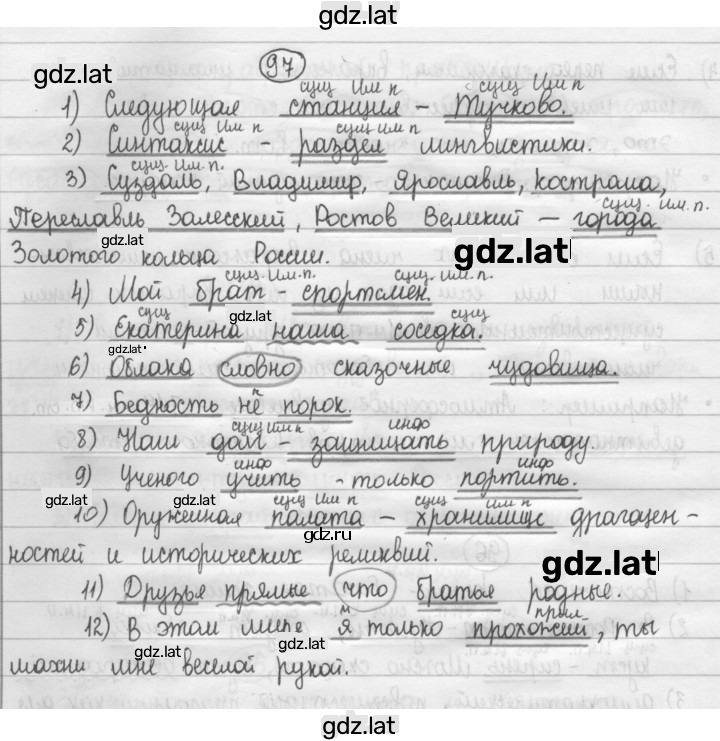 gdz.lat
97
gdz.lat
сущ Им п сущ Им п
1) Следующая станция - Тучково.
сущ Им п сущ Им п
2) Синтаксис - раздел лингвистики.
gdz.lat
сущ. Им. п.
3) Суздаль, Владимир, Ярославль, Кострома,
сущ. Им. п.
Переславль Залесский, Ростов Великий – города
gdz.lat gdz.lat
Золотого кольца России.
сущ. Им. п. сущ. Им. п.
4) Мой брат - спортсмен.
gdz.lat gdz.lat
сущ сущ
5) Екатерина наша соседка.
gdz.lat
6) Облака словно сказочные чудовища.
п
7) Бедность не порок.
сущ Им п инф
8) Наш долг - защищать природу.
инф инф
9) Ученого учить - только портить.
gdz.lat gdz.lat
сущ Им п сущ Им п
10) Оружейная палата – хранилище драгоцен-
ностей и исторических реликвий.
gdz.lat gdz.lat
11) Друзья прямые что братья родные.
м прил
12) В этом мире я только прохожий, ты
gdz.lat gdz.lat
махни мне веселой рукой.
gdz.lat